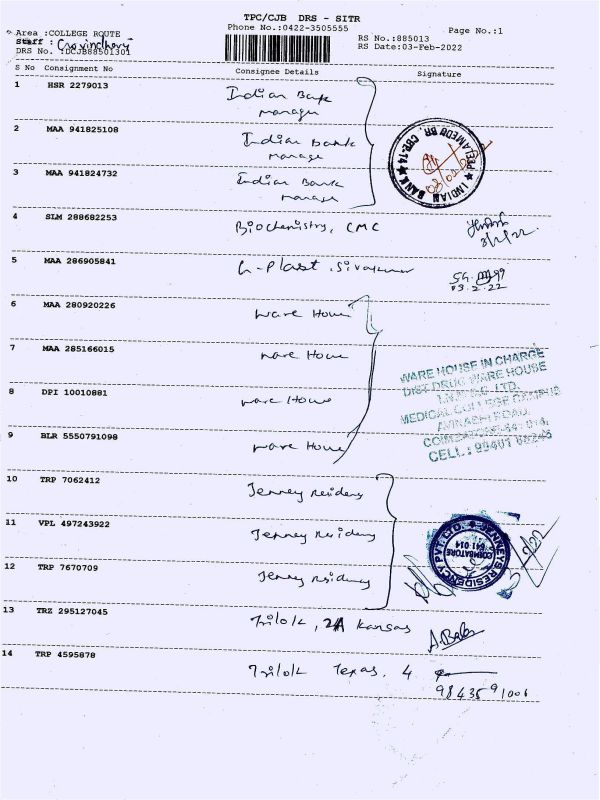 TPC/CJB DRS - SITR
Phone No.:0422-3505555
Page No.:1
Area :COLLEGE ROUTE
Staff :
DRS No. :DCJB88501301
RS No.:885013
RS Date:03-Feb-2022
S No Consignment No Consignee Details Signature
1 HSR 2279013 Indian Bank
manager
2 MAA 941825108 Indian bank
manage
3 MAA 941824732 Indian Bank
manage
INDIAN BANK
PEELAMEDU BR, CBE-14
4 SLM 288682253 Biochemistry, CMC
3/2/22
5 MAA 286905841 G-Plast, Sivakumar
03.2.22
6 MAA 280920226 ware House
7 MAA 285166015 ware House
8 DPI 10010881 ware House
9 BLR 5550791098 ware House
WARE HOUSE IN CHARGE
DIST DRUG WARE HOUSE
LTD.
MEDICAL COLLEGE CAMPUS
AVINASHI ROAD,
COIMBATORE-641 014.
CELL : 99401 68245
10 TRP 7062412 Jenney Residency
11 VPL 497243922 Jenney Residency
12 TRP 7670709 Jenney Residency
JENNEYS RESIDENCY PVT. LTD.
COIMBATORE
641 014
13 TRZ 295127045 Trilok, 2A Kansas
A.Babu
14 TRP 4595878 Trilok Texas, 4
9843591006